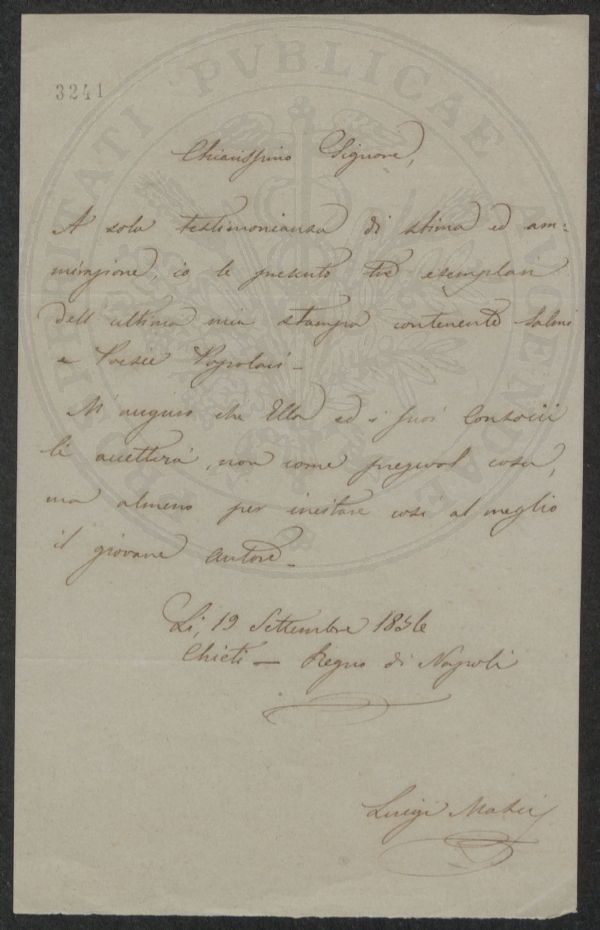 3241
Chiarissimo Signore,
A sola testimonianza di stima ed am=
mirazione, io le presento tre esemplari
dell'ultima mia stampa contenente Salmi
e Poesie Popolari –
M'auguro che Ella ed i suoi Consocii
li accetterà, non come pregevol cosa,
ma almeno per incitare così al meglio
il giovane autore –
Li, 19 Settembre
Chieti – Regno di Napoli
Luigi
PUBLICAE